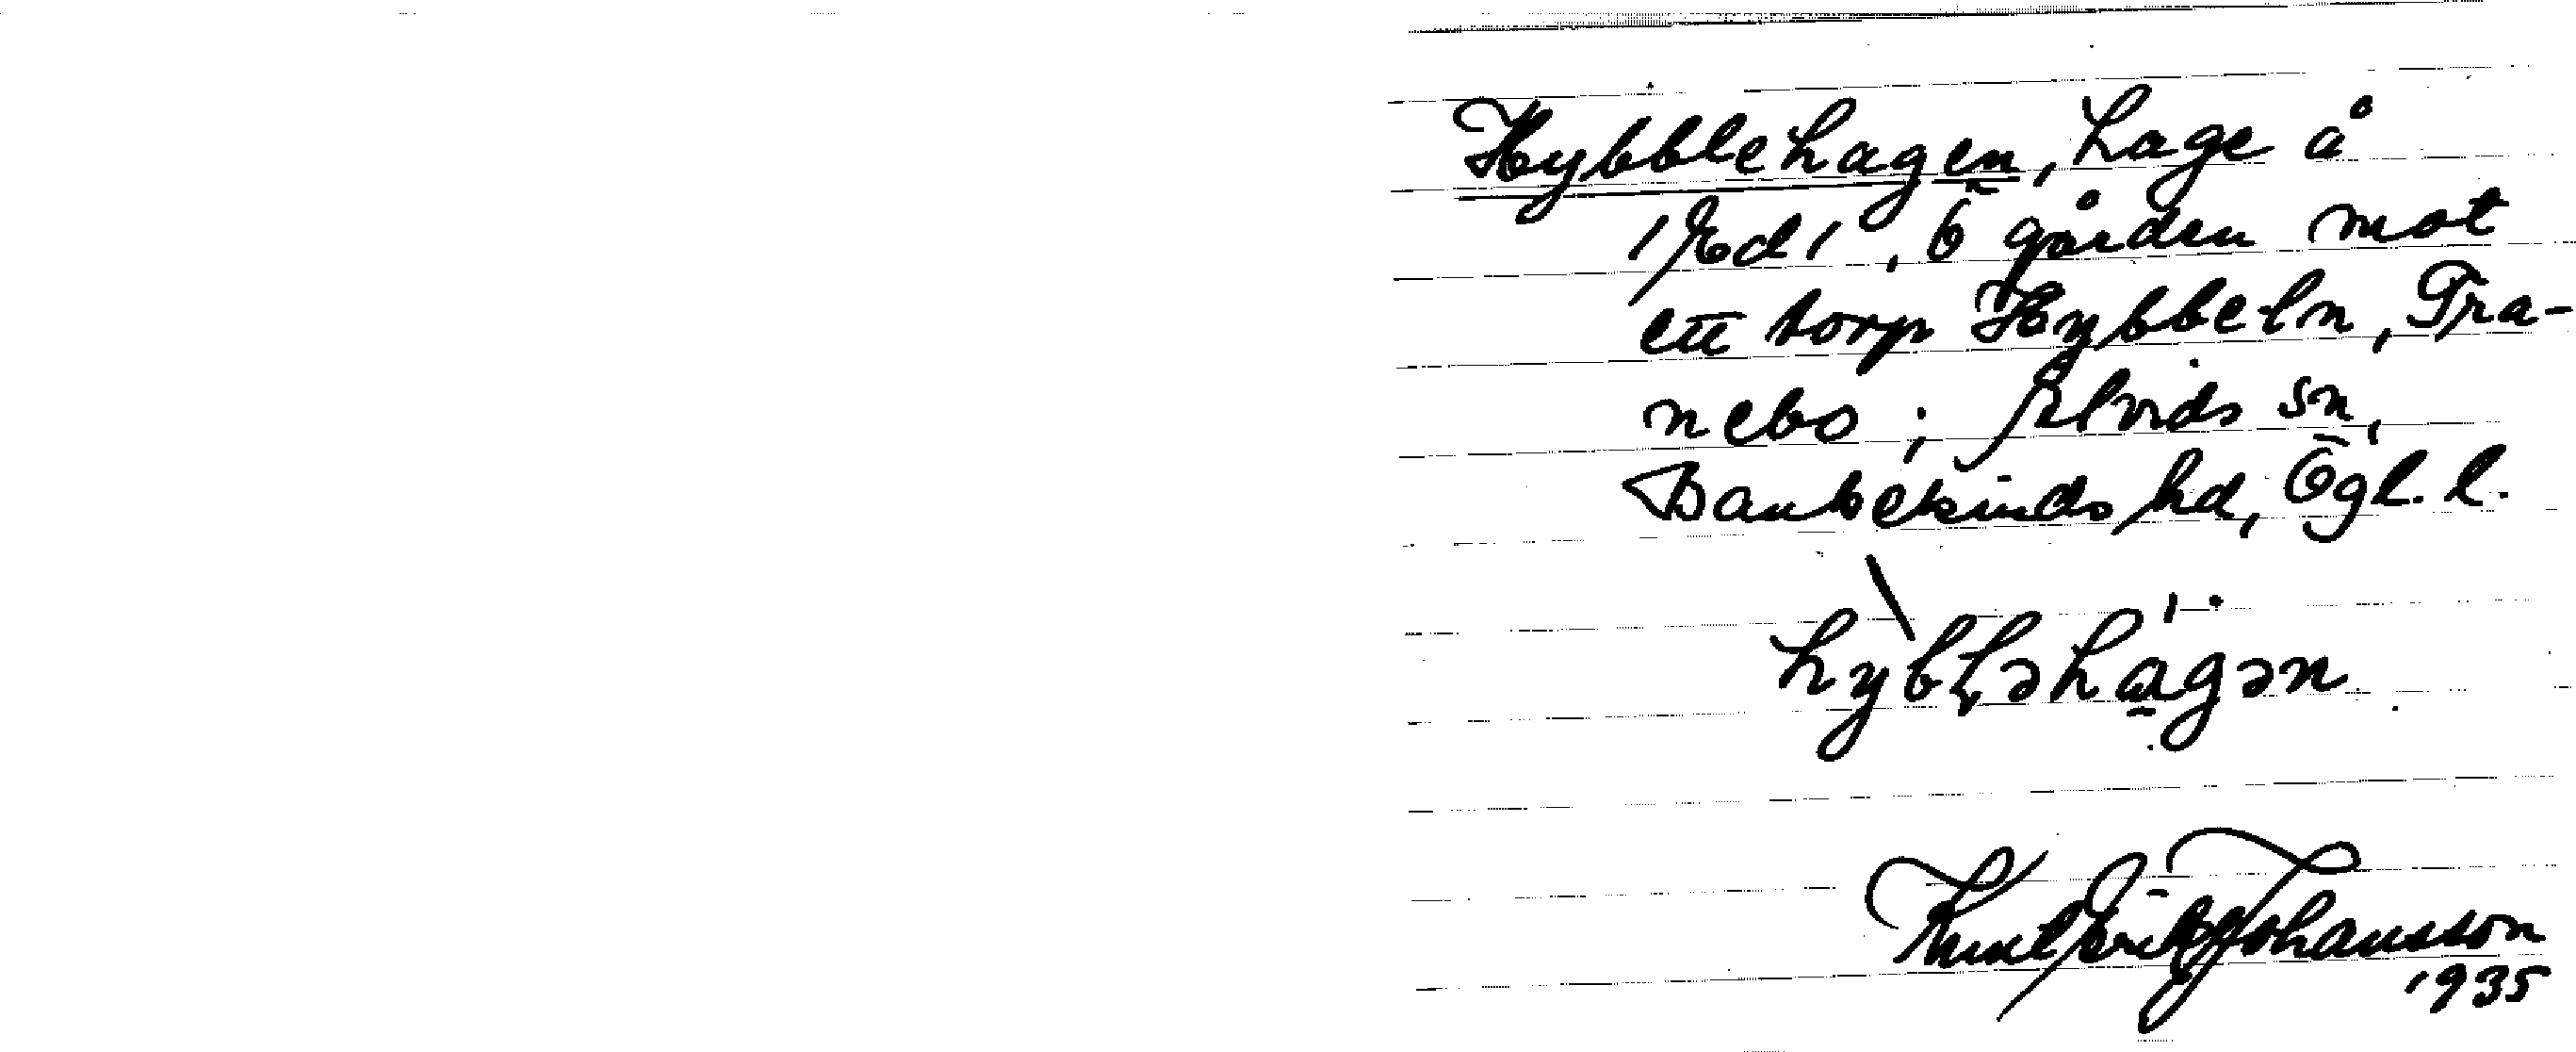 Hybblehagen, hage å
1/Ed1, ö gården mot
ett torp Hybbeln, Tra-
nebo; Ekvids sn,
Bankekinds hd, Ögl. l.
hyblǝhagǝn
Knut Erik Johansson
1935